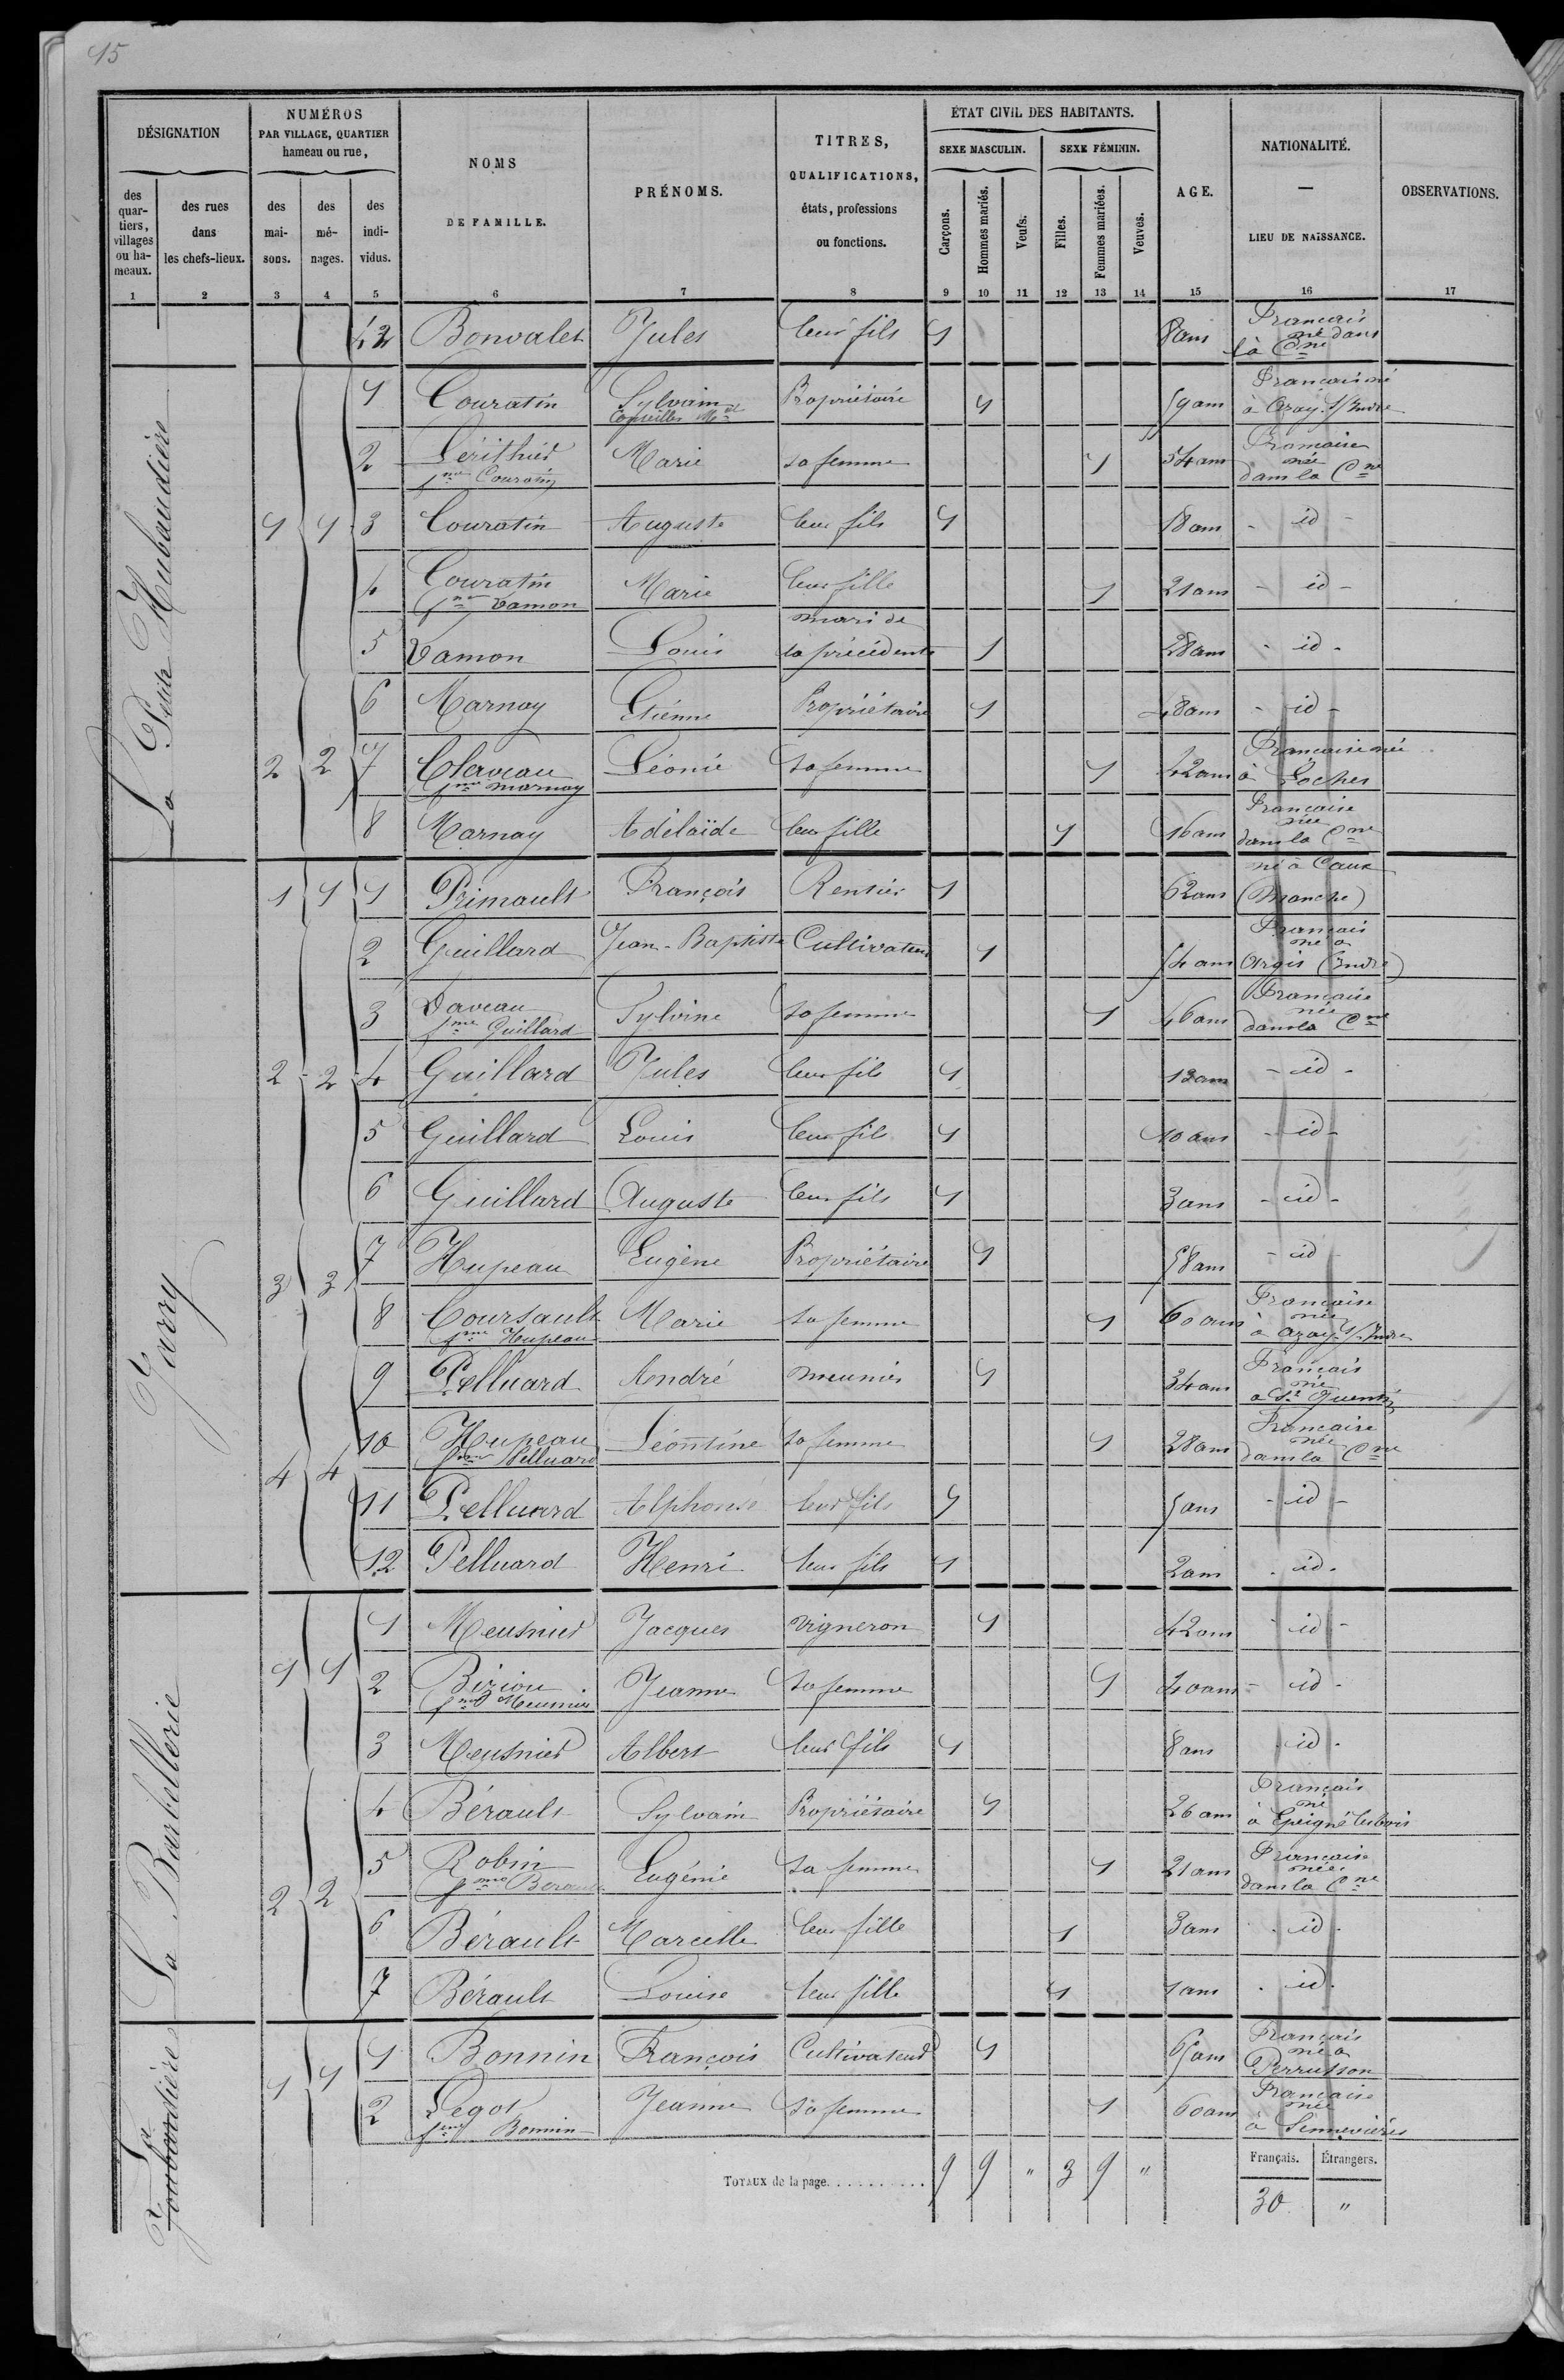 15
DÉSIGNATION
NUMÉROS
PAR VILLAGE, QUARTIER
hameau ou rue,
NOMS
DE FAMILLE.
PRÉNOMS.
TITRES,
QUALIFICATIONS,
états, professions
ou fonctions.
ÉTAT CIVIL DES HABITANTS.
SEXE MASCULIN.
SEXE FÉMININ.
AGE.
NATIONALITÉ.
—
LIEU DE NAISSANCE.
OBSERVATIONS.
des quar-tiers, villages ou ha-meaux.
des rues dans les chefs-lieux.
des mai-sons.
des mé-nages.
des indi-vidus.
Garçons.
Hommes mariés.
Veufs.
Filles.
Femmes mariées.
Veuves.
1 2 3 4 5 6 7 8 9 10 11 12 13 14 15 16 17
42 Bonvalet Jules leur fils 1 8 ans Français né dans la Cne
La Petite Hubaudière
1 Couratin Sylvain Conseiller Mal Propriétaire 1 59 ans Français né à Azay s/ Indre
2 fme Couratin Marie sa femme 1 54 ans Française née dans la Cne
1 1 3 Couratin Auguste leur fils 1 18 ans - id -
4 Couratin fme Vamon Marie leur fille 1 21 ans - id -
5 Vamon Louis mari de la précédente 1 28 ans - id -
6 Marnay Etienne Propriétaire 1 48 ans - id -
2 2 7 Claveau fme Marnay Léonie sa femme 1 42 ans Française née à Loches
8 Marnay Adélaïde leur fille 1 16 ans Française née dans la Cne
Jarry
1 1 1 Primault François Rentier 1 62 ans né à Caux (Manche)
2 Guillard Jean-Baptiste Cultivateur 1 54 ans Français né à Argis (Indre)
3 Daveau fme Guillard Sylvine sa femme 1 46 ans Française née dans la Cne
2 2 4 Guillard Jules leur fils 1 13 ans - id -
5 Guillard Louis leur fils 1 10 ans - id -
6 Guillard Auguste leur fils 1 3 ans - id -
3 3 7 Hupeau Eugène Propriétaire 1 58 ans - id -
8 Coursault fme Hupeau Marie sa femme 1 60 ans Française née à Azay s/ Indre
9 Pelluard André meunier 1 34 ans Français né à St Quentin
4 4 10 Hupeau fme Pelluard Léontine sa femme 1 28 ans Française née dans la Cne
11 Pelluard Alphonse leur fils 1 5 ans - id -
12 Pelluard Henri leur fils 1 2 ans - id -
La Barbellerie
1 Meusnier Jacques vigneron 1 42 ans - id -
1 1 2 Béziou fme Meusnier Jeanne sa femme 1 40 ans - id -
3 Meusnier Albert leur fils 1 8 ans - id -
4 Bérault Sylvain Propriétaire 1 26 ans Français né à Epeigné les bois
2 2 5 Robin fme Berault Eugénie sa femme 1 21 ans Française née dans la Cne
6 Bérault Marcelle leur fille 1 3 ans - id -
7 Bérault Louise leur fille 1 1 ans - id -
La
1 1 1 Bonnin François Cultivateur 1 65 ans Français né à Perrusson
2 Legot fme Bonnin Jeanne sa femme 1 60 ans Française née à Sennevières
TOTAUX de la page. . . . . . . . . . 9 9 " 3 9 "
Français. Étrangers.
30 "